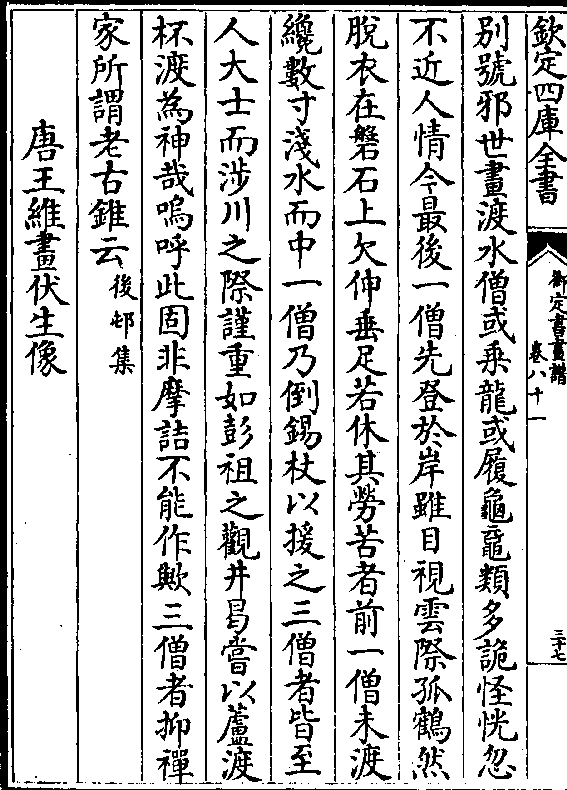 欽定四庫全書
御定書畫譜
卷八十一
三十七
别號邪世畫渡水僧或乘龍或履龜黿類多詭怪恍忽
不近人情今最後一僧先登於岸雖目視雲際孤鶴然
脫衣在磐石上欠伸垂足若休其勞苦者前一僧未渡
纔數寸淺水而中一僧乃倒錫杖以援之三僧者皆至
人大士而涉川之際謹重如彭祖之觀井曷嘗以蘆渡
杯渡為神哉嗚呼此固非摩詰不能作歟三僧者抑禪
家所謂老古錐云後邨集
唐王維畫伏生像